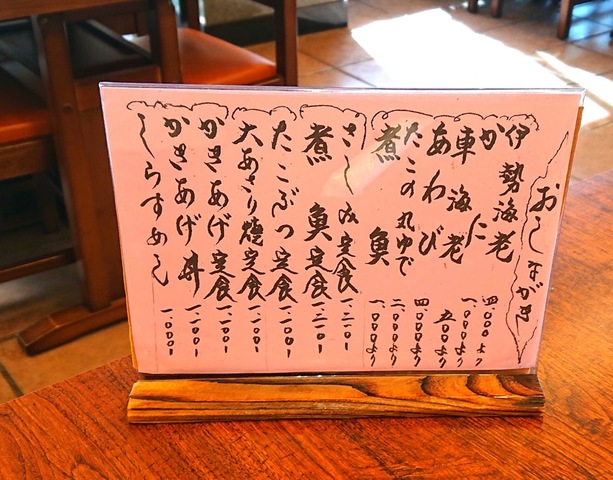 おしながき
伊勢海老 四、〇〇〇より
かに 一、〇〇〇より
車海老 五〇〇より
あわび 四、〇〇〇より
たこの丸ゆで 二、〇〇〇より
煮魚 一、〇〇〇より
さしみ定食
煮魚定食
たこぶつ定食 一、一〇〇ー
大あさり焼定食 一、一〇〇ー
かきあげ定食 一、一〇〇ー
かきあげ丼 一、一〇〇ー
しらすめし 一、〇〇〇ー